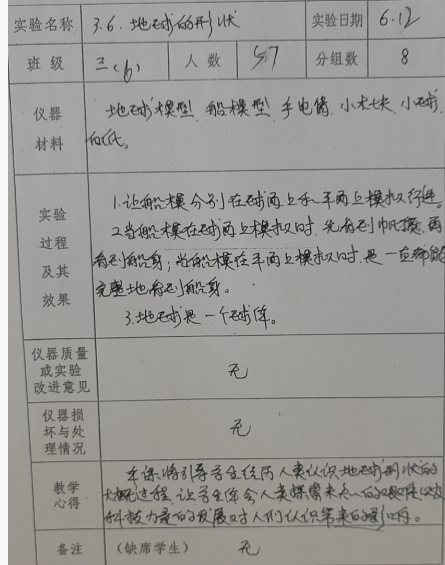 实验名称 3.6.地球的形状 实验日期 6.12
班 级 三(6) 人 数 57 分组数 8
仪器
材料
地球模型、船模型、手电筒、小木块、小球、
白纸。
实验
过程
及其
效果
1.让船模分别在球面上和平面上模拟行进。
2.当船模在球面上模拟时,先看到帆,再
看到船身;当船模在平面上模拟时,是一直都能
完整地看到船身。
3.地球是一个球体。
仪器质量
或实验
改进意见
无
仪器损
坏与处
理情况
无
教学
心得
本课将引导学生经历人类认识地球形状的
大概过程,让学生体会人类探索未知的艰难以及
科技力量的发展对人们认识带来的影响。
备注 (缺席学生) 无